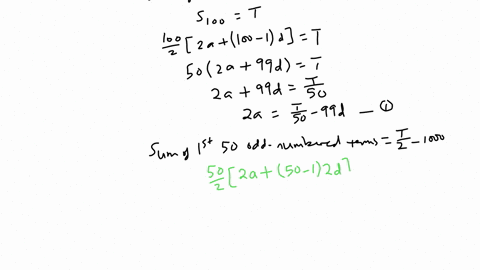 S₁₀₀ = T
100/2 [2a + (100-1)d] = T
50(2a + 99d) = T
2a + 99d = T/50
2a = T/50 - 99d — ①
Sum of 1st 50 odd-numbered terms = T/2 - 1000
50/2 [2a + (50-1)2d]